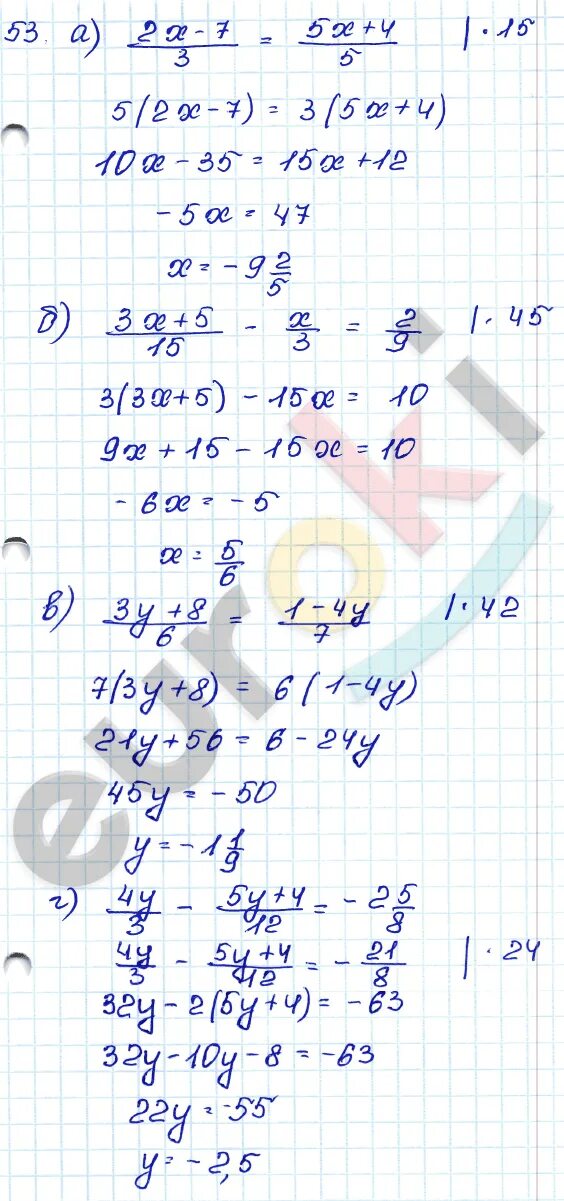 53. а) (2x-7)/3 = (5x+4)/5 | · 15
5(2x-7) = 3(5x+4)
10x - 35 = 15x + 12
- 5x = 47
x = - 9 2/5
б) (3x+5)/15 - x/3 = 2/9 | · 45
3(3x+5) - 15x = 10
9x + 15 - 15x = 10
- 6x = - 5
x = 5/6
в) (3y+8)/6 = (1-4y)/7 | · 42
7(3y+8) = 6(1-4y)
21y + 56 = 6 - 24y
45y = - 50
y = - 1 1/9
г) 4y/3 - (5y+4)/12 = - 2 5/8
4y/3 - (5y+4)/12 = - 21/8 | · 24
32y - 2(5y+4) = -63
32y - 10y - 8 = -63
22y = -55
y = - 2,5
euroki